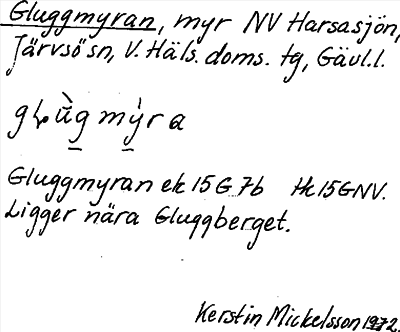 Gluggmyran, myr NV Harsasjön,
Järvsö sn, V. Häls. doms. tg, Gävl.l.
Gluggmyran ek 15G 7b Hk 15GNV.
Ligger nära Gluggberget.
Kerstin Mickelsson 1972.